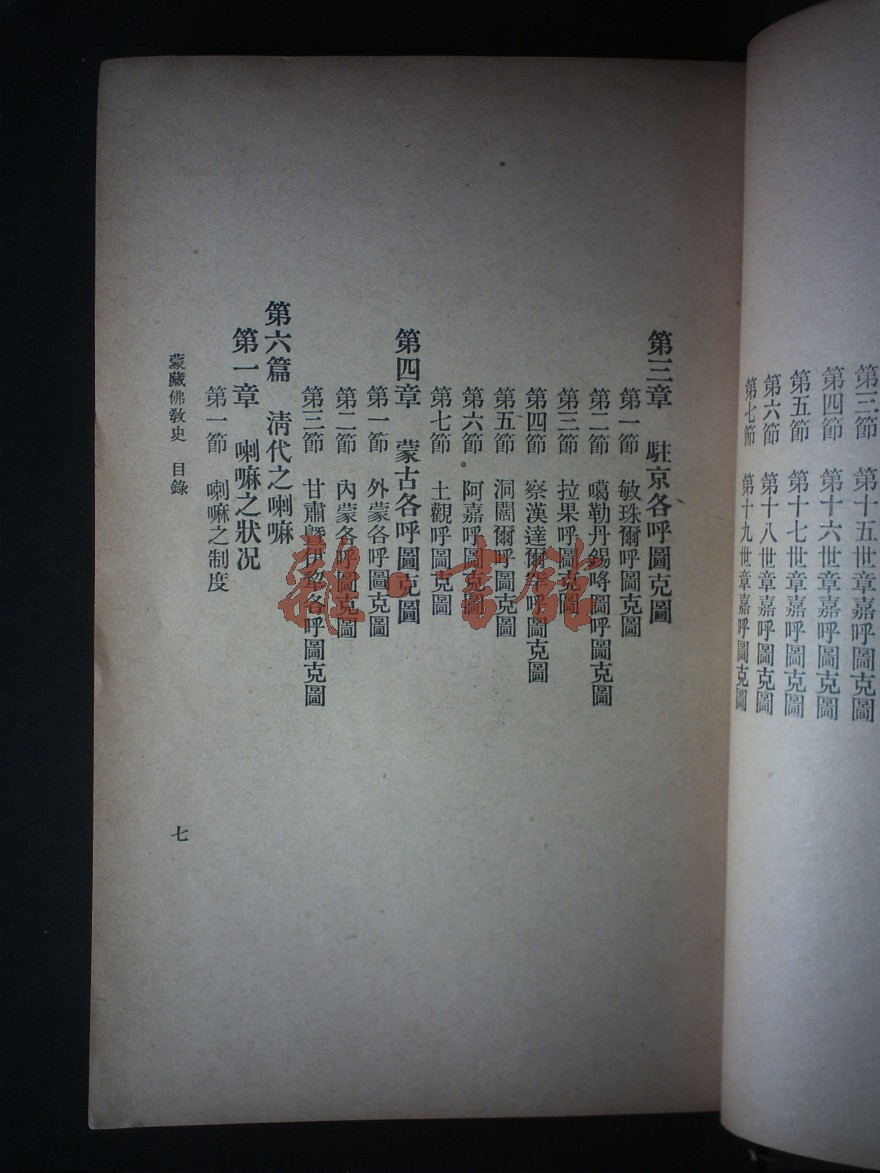 第三節 第十五世章嘉呼圖克圖
第四節 第十六世章嘉呼圖克圖
第五節 第十七世章嘉呼圖克圖
第六節 第十八世章嘉呼圖克圖
第七節 第十九世章嘉呼圖克圖
第三章 駐京各呼圖克圖
第一節 敏珠爾呼圖克圖
第二節 噶勒丹錫呼圖呼圖克圖
第三節 拉果呼圖克圖
第四節 察漢達爾罕呼圖克圖
第五節 洞闊爾呼圖克圖
第六節 阿嘉呼圖克圖
第七節 土觀呼圖克圖
第四章 蒙古各呼圖克圖
第一節 外蒙各呼圖克圖
第二節 內蒙各呼圖克圖
第三節 甘肅暨伊犂各呼圖克圖
第六篇 淸代之喇嘛
第一章 喇嘛之狀況
第一節 喇嘛之制度
蒙藏佛敎史 目錄
七
雜·書館